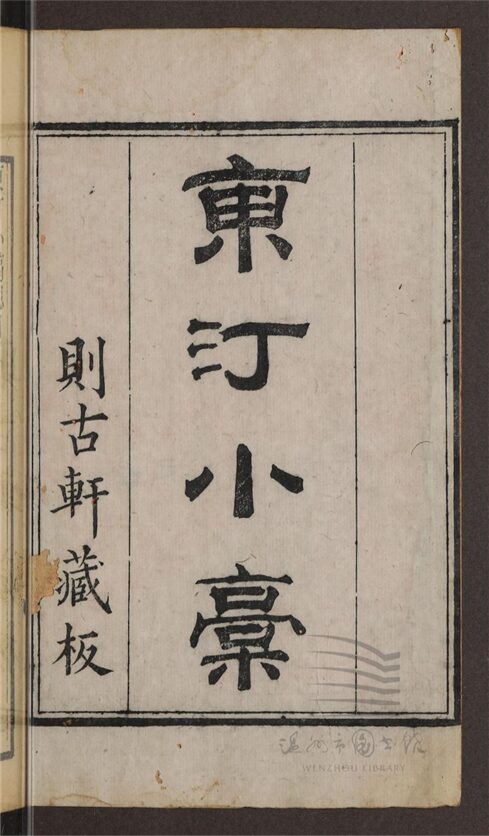 東汀小稾
則古軒藏板
温州市图书馆
WENZHOU LIBRARY